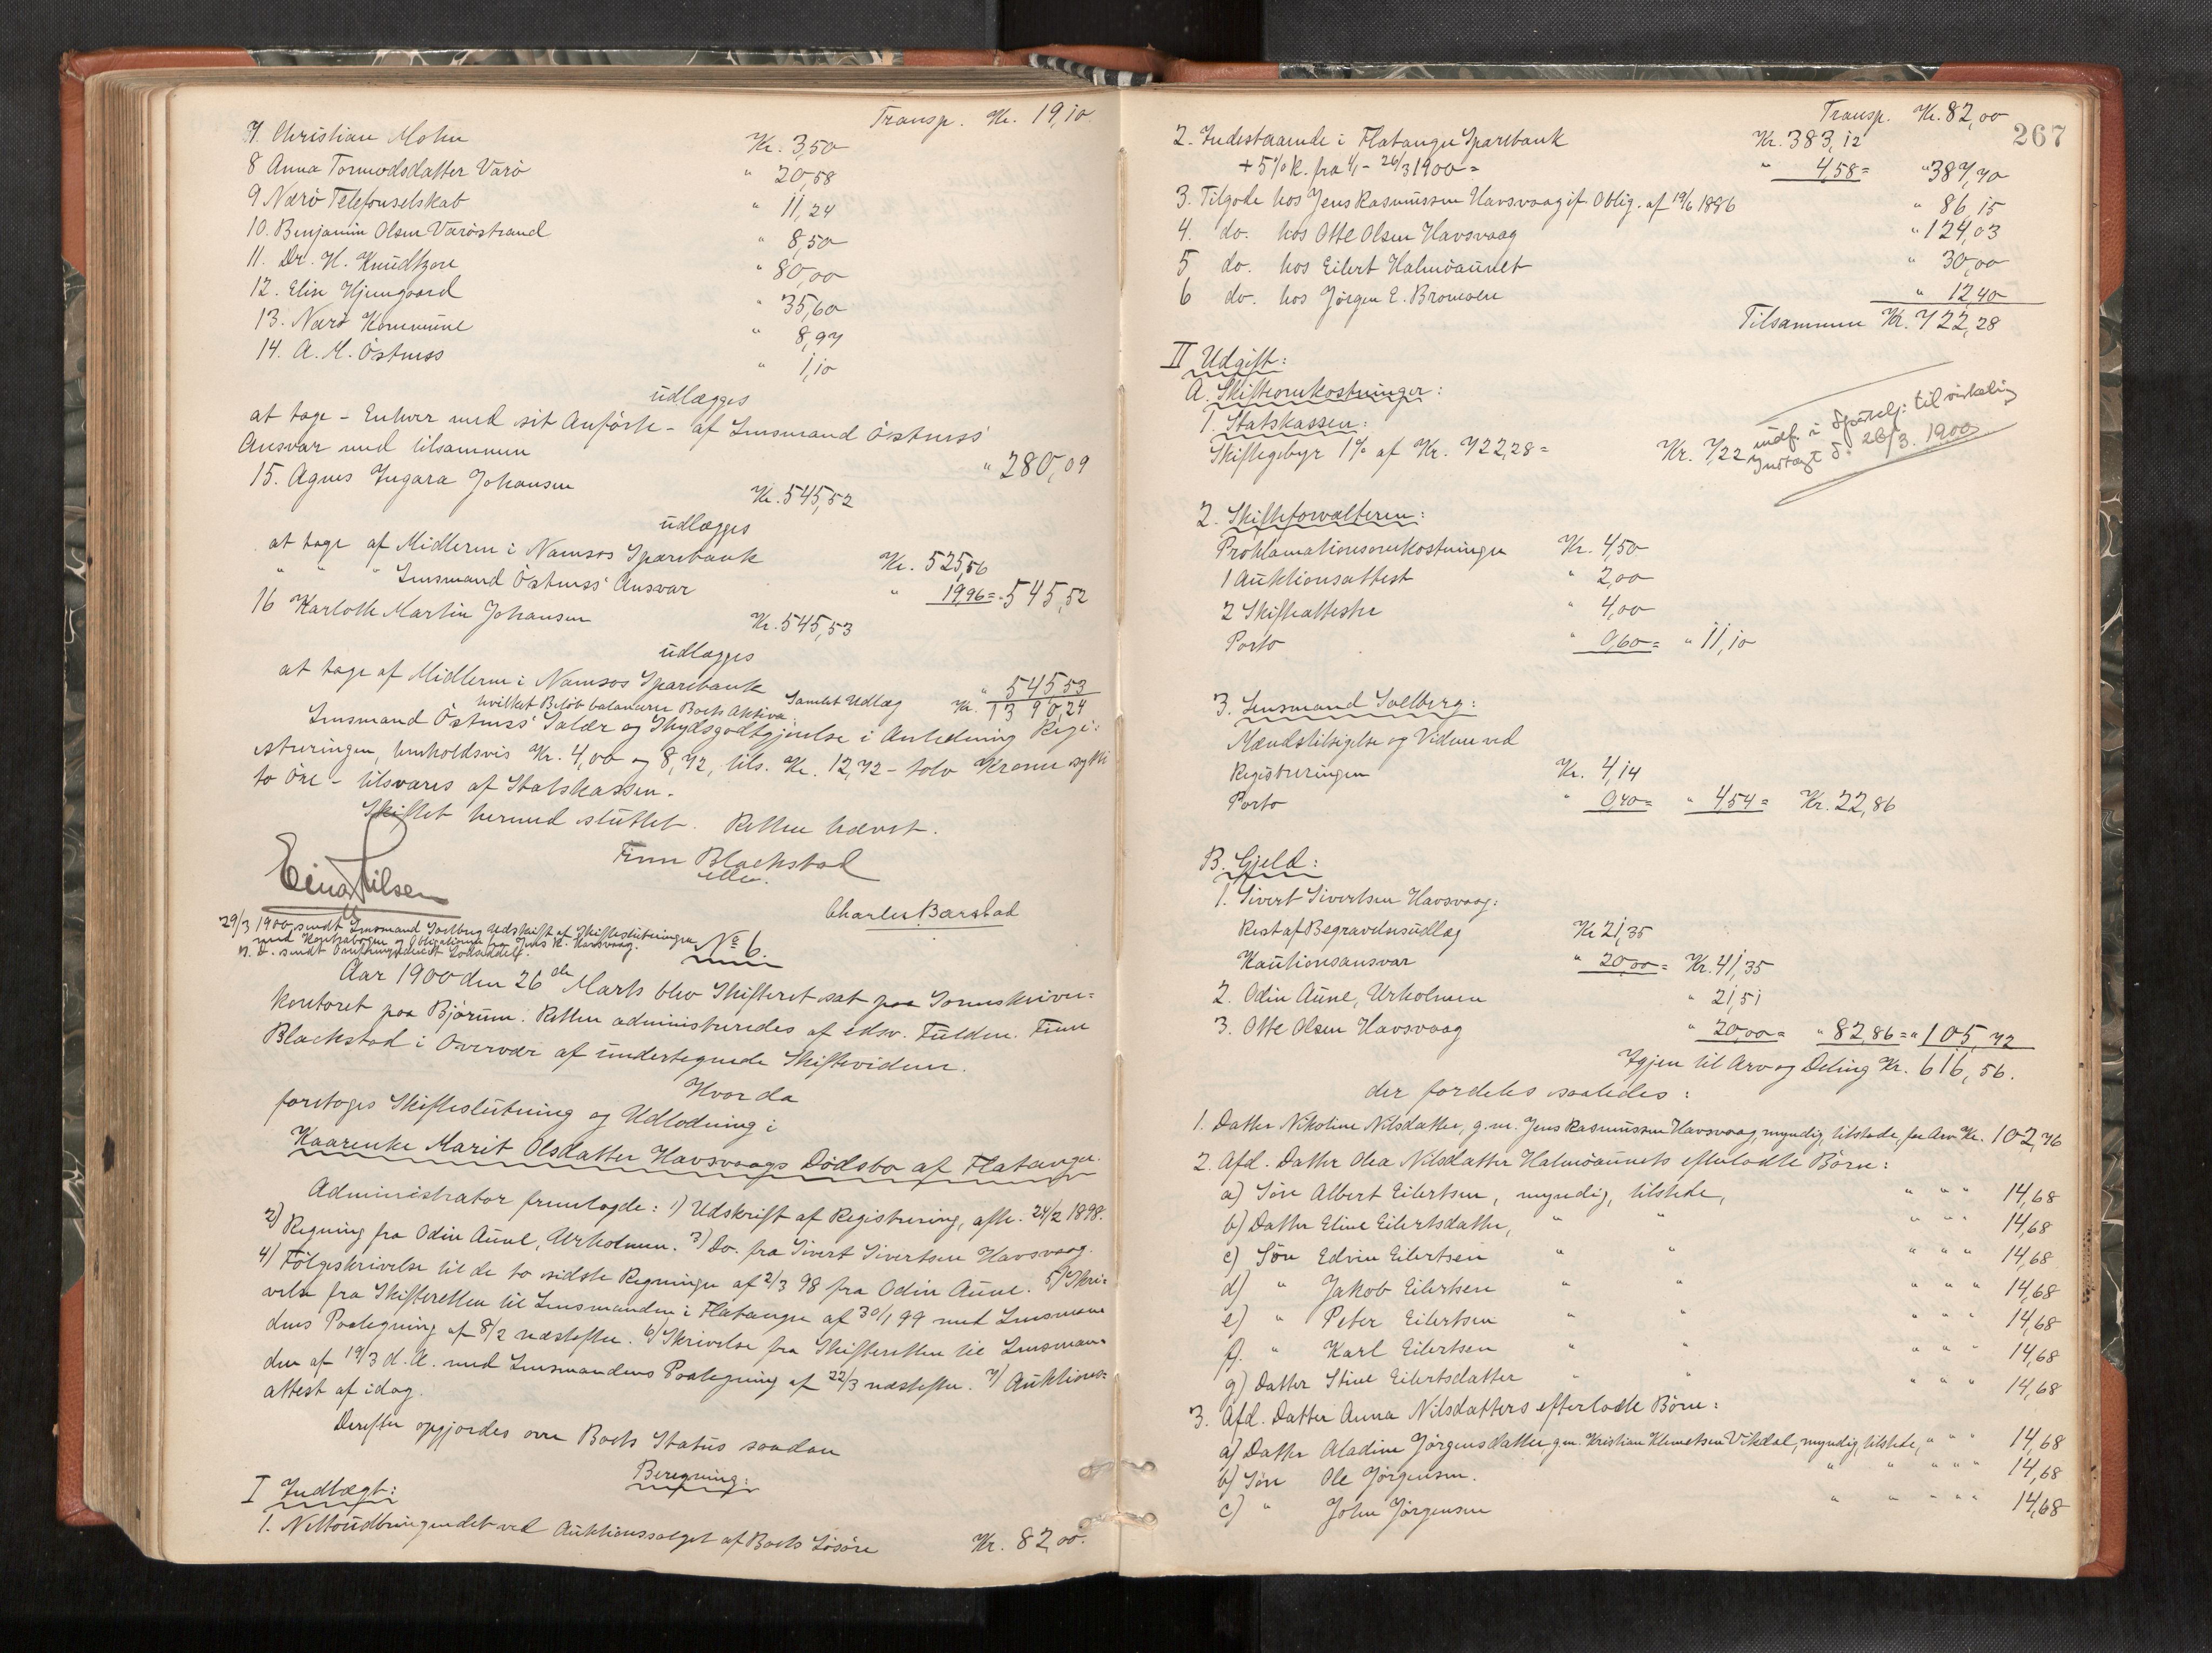 Transp. Kr. 19,10
7. Christian Mohn Kr. 3,50
8 Anna Tormodsdatter Varö " 20,58
9 Nærö Telefonselskab " 11,24
10. Benjamin Olsen Varöstrand " 8,50
11. Dr. H. Knudtzon " 80,00
12. Elise Hjemgaard " 35,60
13. Nærö Kommune " 8,97
14. A. M. Östness " 1,10
udlægges
at tage - Enhver med sit Anförte - af Lensmand Östness'
Ansvar med tilsammen " 280,09
15. Agnes Ingara Johansen Kr. 545,52
udlægges
at tage af Midlerne i Namsos Sparebank Kr. 525,56
" " " Lensmand Östness' Ansvar " 19,96 = " 545,52
16 Karloth Martin Johansen Kr. 545,53
udlægges
at tage af Midlerne i Namsos Sparebank " 545,53
Samlet Udlæg Kr. 1390,24
hvilket Belöb balancerer Boets Aktiva.
Lensmand Östness' Salær og Skydsgodtgjørelse i Anledning Regi-
streringen, henholdsvis Kr. 4,00 og 8,72, tils. Kr. 12,72 - tolv Kroner sytti
to Öre - tilsvares af Statskassen.
Skiftet hermed sluttet. Retten hævet.
Finn Blackstad
Einar Nilsen
Charles Barstad
29/3 1900 sendt Lensmand Solberg Udskrift af Skifteslutningen
med Kontrabogen og Obligationen fra Jens R. Havsvaag.
No 6.
Aar 1900 den 26de Marts blev Skifteret sat paa Sorenskriver-
kontoret paa Björum. Retten administreredes af edsv. Fuldm. Finn
Blackstad i Overvær af undertegnede Skiftevidner.
Hvor da
foretoges Skifteslutning og Udlodning i
Kaarenke Marit Olsdatter Havsvaags Dödsbo af Flatanger.
Administrator fremlagde: 1) Udskrift af Registrering, afh. 24/2 1898.
2) Regning fra Odin Aune, Urholmen. 3) Do. fra Sivert Sivertsen Havsvaag.
4) Fölgeskrivelse til de to sidste Regninger af 2/3 98 fra Odin Aune. 5) Skri-
velse fra Skifteretten til Lensmanden i Flatanger af 30/1 99 med Lensman-
dens Paategning af 8/2 næstefter. 6) Skrivelse fra Skifteretten til Lensman-
den af 19/3 d. A. med Lensmandens Paategning af 22/3 næstefter. 7) Auktions-
attest af idag.
Derefter opgjordes over Boets Status saadan
Beregning:
I Indtægt:
1. Nettoudbringendet ved Auktionssalget af Boets Lösöre Kr. 82,00.
267
Transp. Kr. 82,00
2. Indestaaende i Flatanger Sparebank Kr. 383,12
+ 5% R. fra 1/1 - 26/3 1900 = " 4,58 = " 387,70
3. Tilgode hos Jens Rasmussen Havsvaag if. Oblig. af 19/6 1896 " 86,15
4. do. hos Otte Olsen Havsvaag " 124,03
5 do. hos Eilert Halmöaunet " 30,00
6 do. hos Jörgen E. Bromoen " 12,40
Tilsammen Kr. 722,28
II Udgift:
A. Skifteomkostninger:
1. Statskassen:
Skiftegebyr 1% af Kr. 722,28 = Kr. 7,22
indf. i til virkelig
Indtægt d. 26/3. 1900
2. Skifteforvalteren:
Proklamationsomkostninger Kr. 4,50
1 Auktionsattest " 2,00
2 Skifteattester " 4,00
Porto " 0,60 = " 11,10
3. Lensmand Solberg:
Mændstilsigelse og Vidner ved
Registreringen Kr. 4,14
Porto " 0,40 = " 4,54 = Kr. 22,86
B. Gjeld:
1. Sivert Sivertsen Havsvaag:
Rest af Begravelsesudlæg Kr 21,35
Kautionsansvar " 20,00 = Kr. 41,35
2. Odin Aune, Urholmen " 21,51
3. Otte Olsen Havsvaag " 20,00 = " 82,86 = " 105,72
Igjen til Arv og Deling Kr. 616,56.
der fordeles saaledes:
1. Datter Nikoline Nilsdatter, g. m. Jens Rasmussen Havsvaag, myndig, tilstede, faar Arv Kr. 102,76
2. Afd. Datter Olea Nilsdatter Halmöaunets efterladte Börn:
a) Sön Albert Eilertsen, myndig, tilstede, " " " 14,68
b) Datter Eline Eilertsdatter, " " " " " 14,68
c) Sön Edvin Eilertsen " " " " " 14,68
d) " Jakob Eilertsen " " " " " 14,68
e) " Peter Eilertsen " " " " " 14,68
f. " Karl Eilertsen " " " " " 14,68
g) Datter Stine Eilertsdatter " " " " " 14,68
3. Afd. Datter Anna Nilsdatters efterladte Börn:
a) Datter Aladine Jörgensdatter, g. m. Kristian Klemetsen Vikdal, myndig, tilstede, " " " 14,68
b) Sön Ole Jörgensen. " " " " " 14,68
c) " John Jörgensen " " " " " 14,68